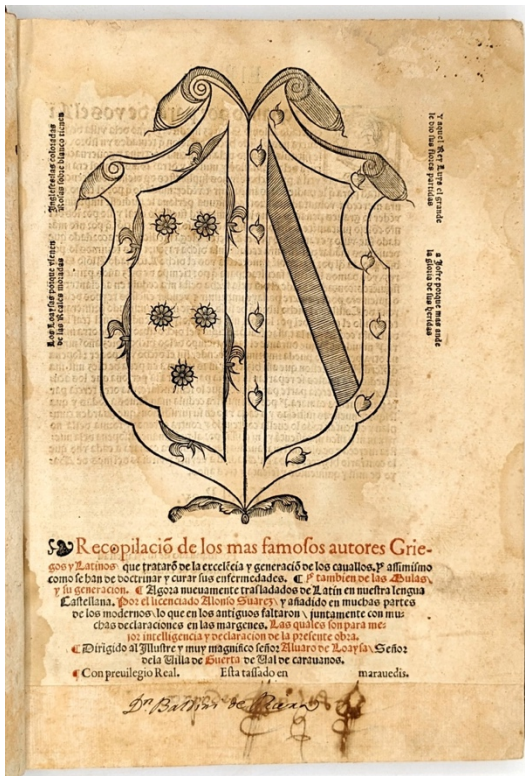 Los Loaysas porque vienen
de las Reales moradas
Inglesesdas coloradas
Rosas sobre blanco tienen
Y aquel Rey Luys el grande
le dio sus flores partidas
a Jofre porque mas ande
la gloria de sus heridas
Recopilaciõ de los mas famosos autores Grie-
gos y Latinos que tratarõ de la excelẽcia y generaciõ de los cavallos. Y assimismo
como se han de doctrinar y curar sus enfermedades. ¶ Y tambien de las Mulas
y su generacion. ¶ Agora nuevamente trasladados de Latin en nuestra lengua
Castellana. Por el licenciado Alonso Suarez y añadido en muchas partes
de los modernos lo que en los antiguos faltaron juntamente con mu-
chas declaraciones en las margenes. Las quales son para me-
jor intelligencia y declaracion de la presente obra.
¶ Dirigido al Illustre y muy magnifico señor Alvaro de Loaysa Señor
dela Villa de Huerta de Val de caravanos.
¶ Con previlegio Real. Esta tassado en maravedis.
Dn de